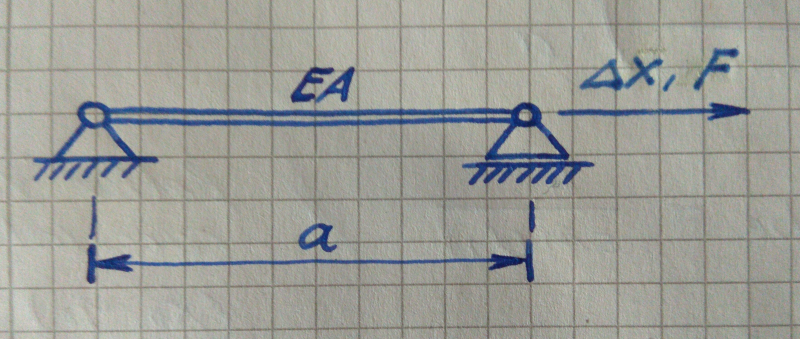 EA
Δx, F
a